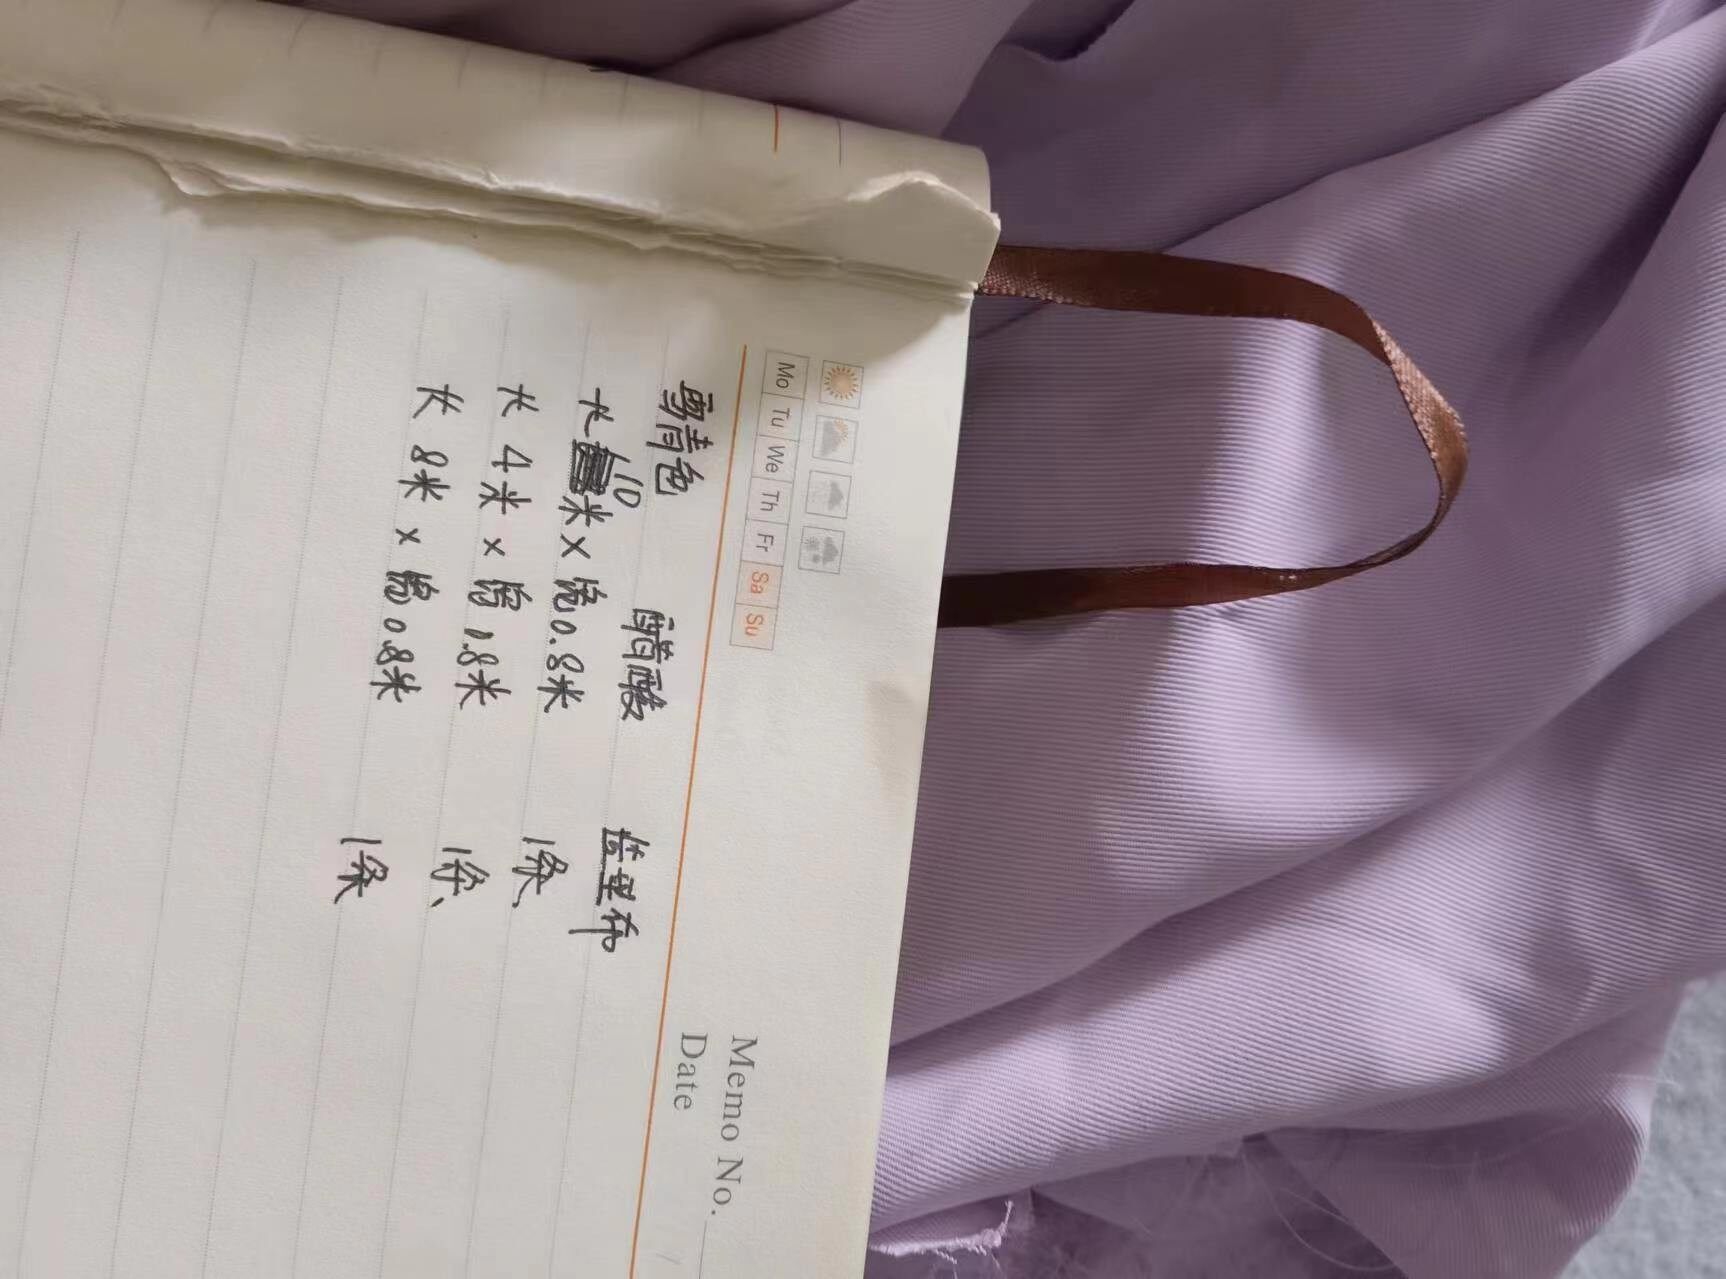 Memo No.
Mo Tu We Th Fr Sa Su Date
青色 醋酸 布
长10米×宽0.8米 1条、
长4米×宽0.8米 1条、
长8米×宽0.8米 1条